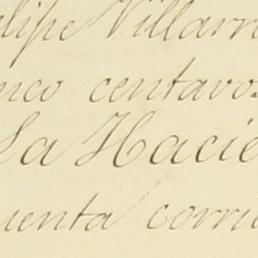 elipe Villarr
nco centavos
La Hacie
uenta corri